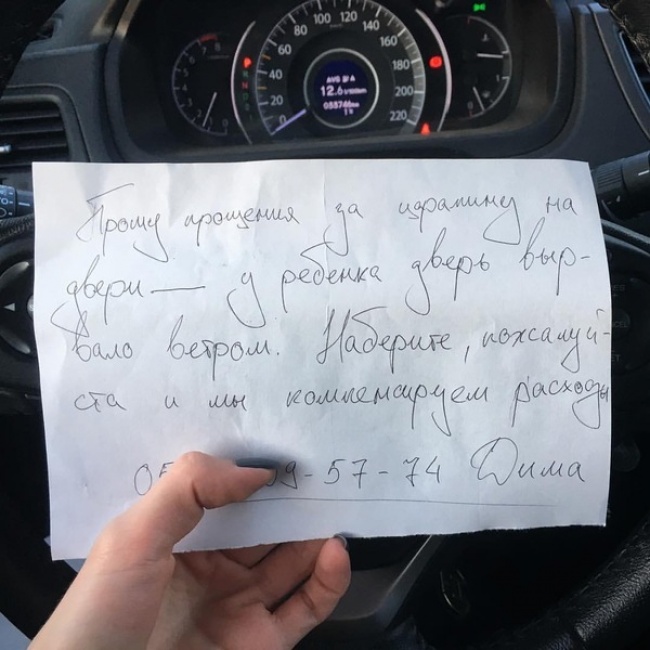 20 40 60 80 100 120 140 160 180 200 220
P
R
N
D
12.6
Прошу прощения за царапину на
двери — у ребенка дверь выр-
вало ветром. Наберите, пожалуй-
ста и мы компенсируем расходы
9-57-74 Дима